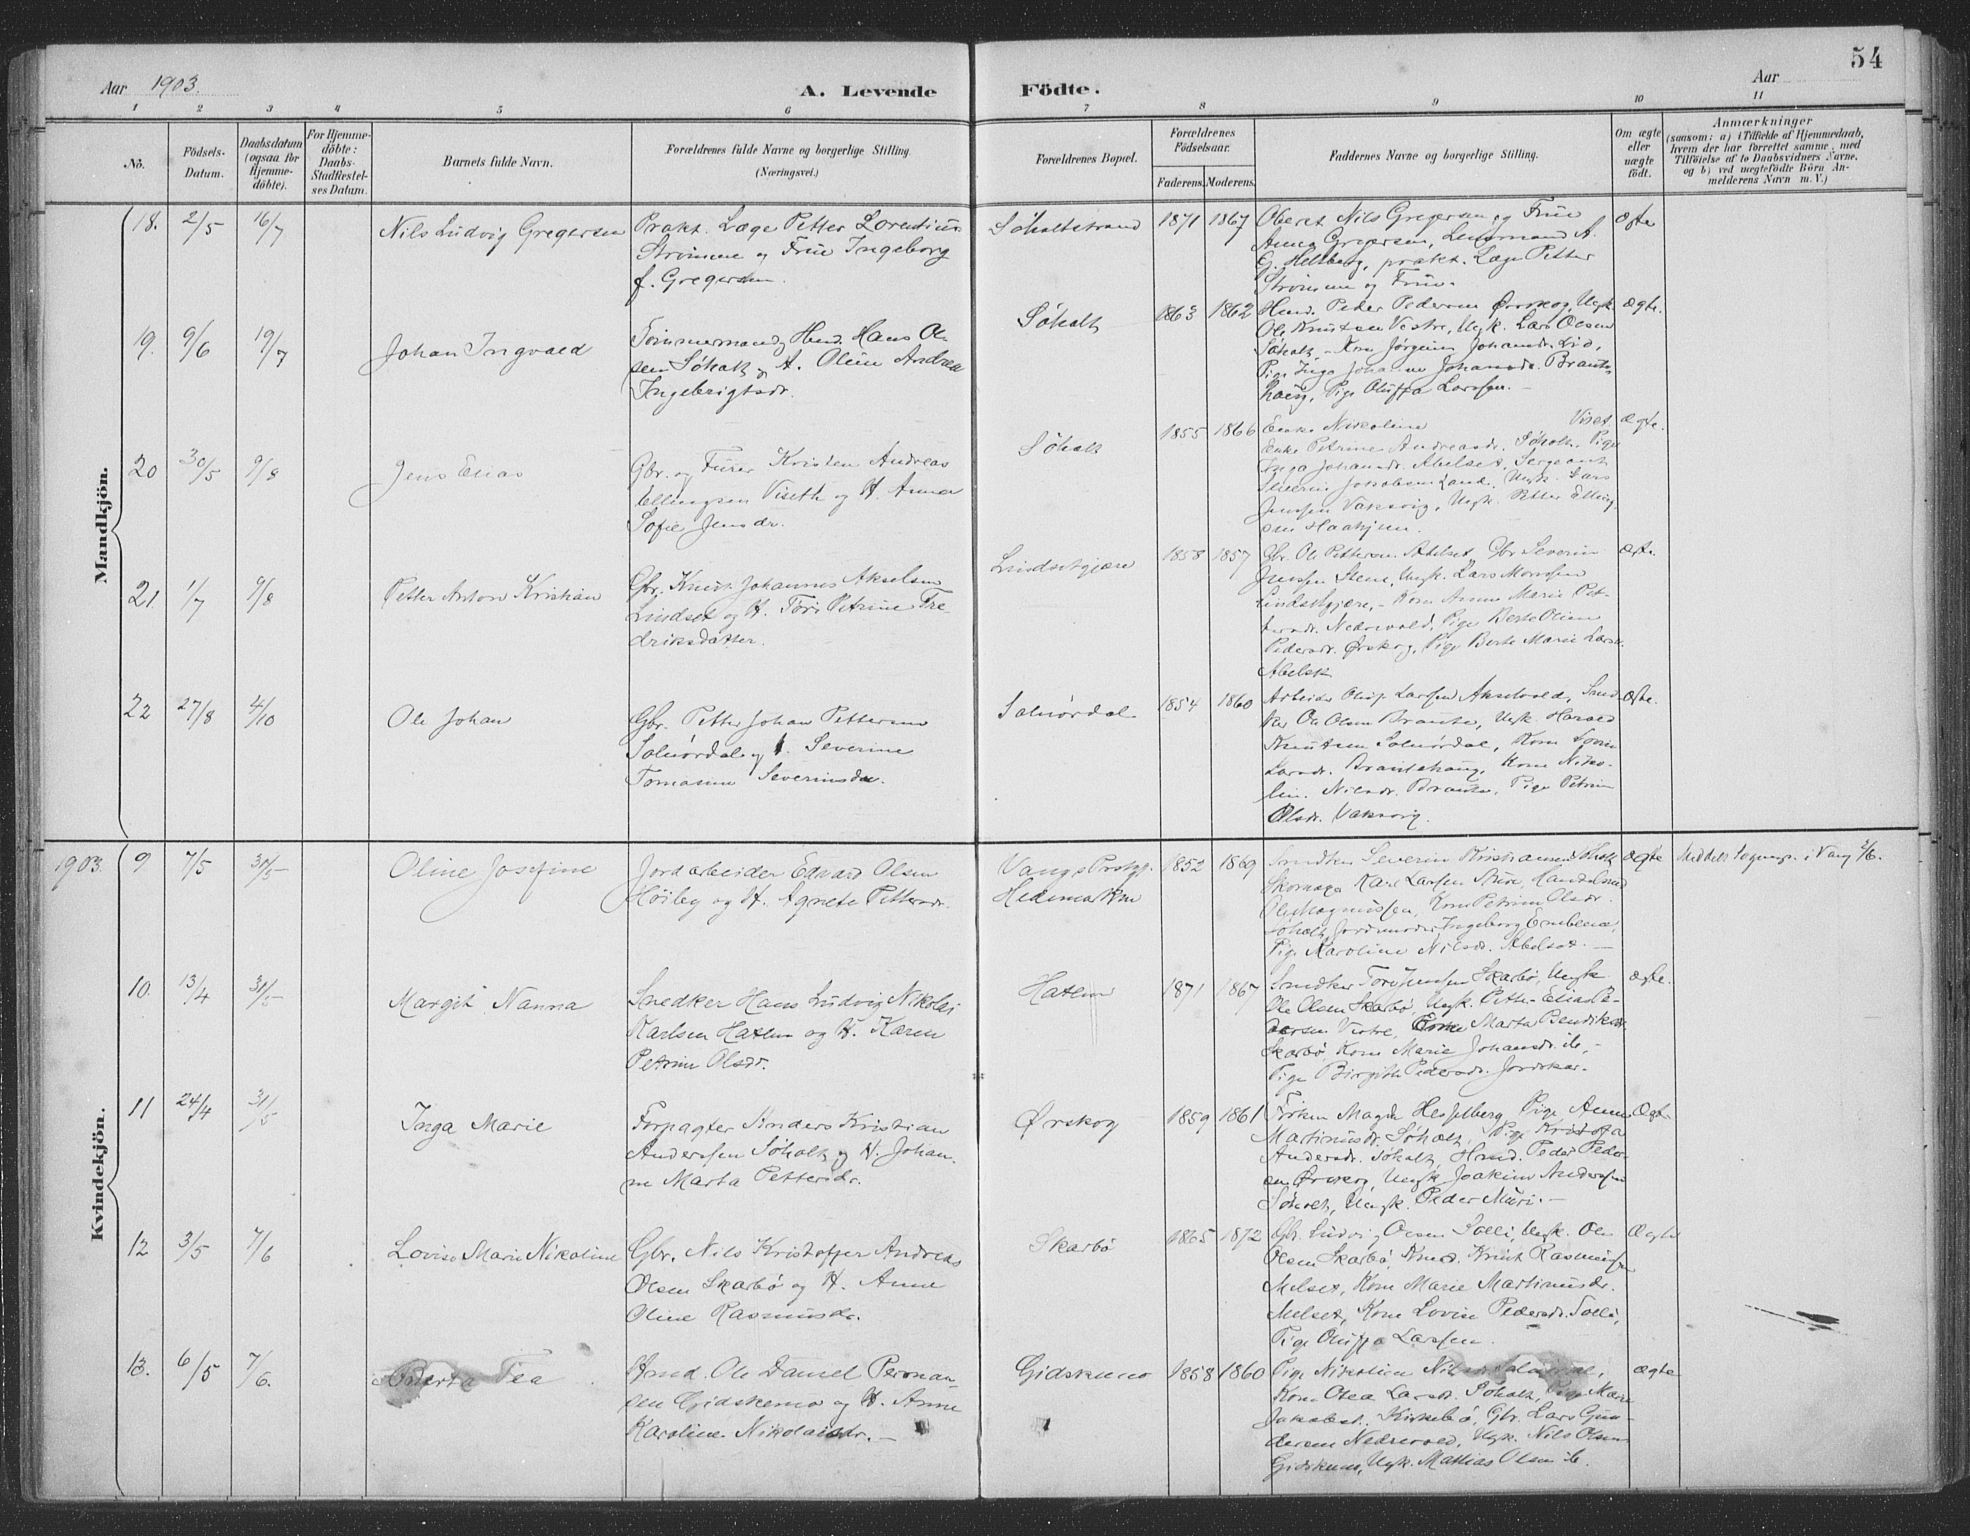 54
Aar 1903.
A. Levende Födte.
Aar
1 2 3 4 5 6 7 8 9 10 11
No.
Födsels-Datum.
Daabsdatum (ogsaa for Hjemmedöbte).
For Hjemmedöbte: Daabs-Stadfæstelses Datum.
Barnets fulde Navn.
Forældrenes fulde Navne og borgerlige Stilling.
(Næringsvei.)
Forældrenes Bopæl.
Forældrenes Födselsaar.
Faderens. Moderens.
Faddernes Navne og borgerlige Stilling.
Om ægte eller uægte födt.
Anmærkninger
(saasom: a) i Tilfælde af Hjemmedaab,
hvem der har forrettet samme, med
Tilföielse af to Daabsvidners Navne,
og b) ved uægtefödte Börn An-
melderens Navn m. V.)
Mandkjön.
18. 2/5 16/7 Nils Ludvig Gregersen
Prakt. Læge Petter Lorentius
Strömme og Frue Ingeborg
f. Gregersen.
Söholtstrand 1871 1867
Oberst Nils Gregersen og Frue
Anna Gregersen, Lensmand A.
G. Helsberg, prakt. Læge Petter
Strömme og Frue.
ægte
19. 9/6 19/7 Johan Ingvald
Tömmermand, Hmd. Hans Ol-
sen Söholt og H. Oline Andrea
Ingebrigtsdr.
Söholt 1863 1862
Hmd. Peder Pedersen Ørskog, Ungk.
Ole Knutsen Vestre, Ungk. Lars Olsen
Söholt, Kone Jörgine Johansdr. Lid,
Pige Inga Johanne Johansdr. Braut-
haug, Pige Oluffa Larssen. -
ægte.
20 30/5 9/8 Jens Elias
Gbr. og Furer Kristen Andreas
Ellingsen Viseth og H. Anna
Sofie Jensdr.
Söholt 1855 1866
Enke Nikoline Viset,
Enke Petrine Andreasdr. Söholt, Pige
Inga Johansdr. Abelset, Sergeant
Severin Jakobsen Land, Ungk. Lars
Jenssen Vaksvig, Ungk. Petter Elling-
sen Haahjem.
ægte.
21. 1/7 9/8 Petter Anton Kristian
Gbr. Knut Johannes Akselsen
Lindset og H. Töri Petrine Fre-
driksdatter.
Lindsetgjære 1858 1857
Gbr. Ole Pettersen Abelset, Gbr Severin
Jenssen Stene, Ungk. Lars
Lindsetgjære, - Kone Anne Marie Pet-
tersdr. Nedrevold, Pige Berte Oline
Pedersdr. Ørskog, Pige Berte Marie Larsdr.
Abelset
ægte
22 27/8 4/10 Ole Johan
Gbr. Petter Johan Pettersen
Solnördal og H. Severine
Tomasine Severinsdr.
Solnördal 1854 1860
Arbeider Oluf Larssen Akselvold, Sned-
ker Ole Olsen Braute, Ungk. Harald
Knutsen Solnördal, Kone Lovise
Larsdr. Brautehaug, Kone Niko-
line Nilsdr. Braute, Pige Petrine
Olsdr. Vaksvig.
ægte.
Kvindekjön.
1903. 9 7/5 30/5 Oline Josefine
Jordarbeider Edvard Olsen
Höiby og H. Agnete Pettersdr.
Vangs Prstgj.
Hedemarken
1852 1869
Snedker Severin Kristiansen Söholt
Skomager Karl Larssen Sture, Handelsmd
Ole Magnussen, Kone Petrine Olsdr.
Söholt, Jordmoder Ingeborg Emblem,
Pige Karoline Nilsdr. Abelset. -
ægte
Meddelt Sognepr. i Vang 2/6.
10. 13/4 31/5 Margit Nanna
Snedker Hans Ludvig Nikolai
Karlsen Hatlen og H. Karen
Petrine Olsdr.
Hatlen 1871 1867
Snedker Tore Jensen Skarbö, Ungk.
Ole Olsen Skarbö, Ungk. Petter Elias Pe-
dersen Vestre, Enke Marta Bendiksdr.
Skarbö, Kone Marie Johansdr. ib, -
Pige Birgith Pedersdr. Jordskar.
ægte.
11 24/4 31/5 Inga Marie
Forpagter Anders Kristian
Anderssen Söholt og H. Johan-
ne Marta Pettersdr.
Ørskog 1859 1861
Fröken Magda Hesselberg, Pige Anne
Martinusdr. Söholt, Pige Kristofa
Andersdr. Söholt, Hmd. Peder Peder-
sen Ørskog, Ungk. Joakim Anderssen
Söholt, Ungk. Peder Muri. -
Ægte
12 3/5 7/6 Lovise Marie Nikoline
Gbr. Nils Kristoffer Andreas
Olsen Skarbö og H. Anne
Oline Rasmusdr.
Skarbö 1865 1872
Gbr. Ludvig Olsen Solli, Ungk. Ole
Olsen Skarbö, Hmd. Knut Rasmussen
Melset, Kone Marie Martinusdr.
Melset, Kone Lovise Pedersdr. Solli,
Pige Oluffa Larssen.
Ægte
13. 6/5 7/6. Berta Tea
Hmd. Ole Daniel Peronan-
sen Gidskemo og H. Anne
Karoline Nikolaisdr. -
Gidskemo 1858 1860
Pige Nikoline
Kone Olea Larsdr. Söholt, Pige Marie
Jakobsdr. Kirkebö, Gbr. Lars Gun-
dersen Nedrevold, Ungk. Nils Olsen
Gidskemo, Ungk. Mathias Olsen ib.
ægte